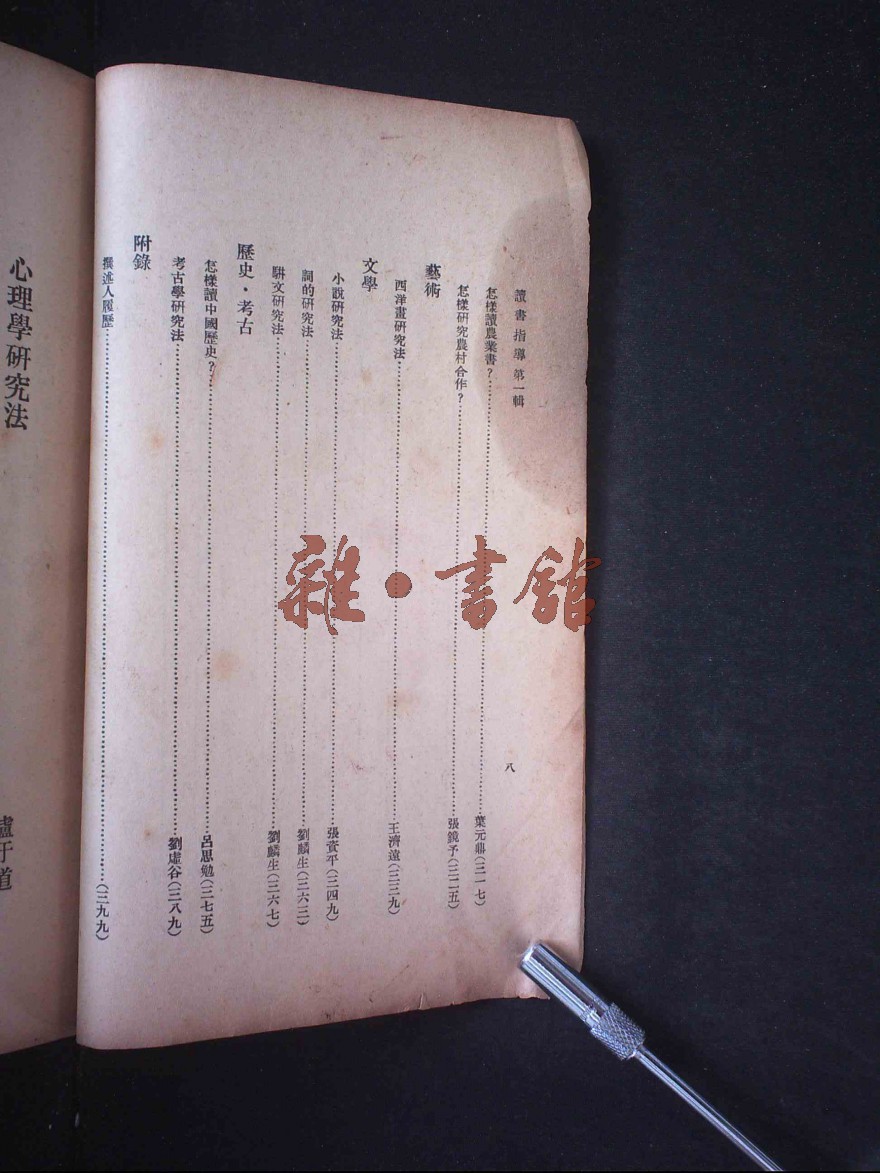 讀書指導第一輯
八
怎樣讀農業書?……葉元鼎(三一七)
怎樣研究農村合作?……張鏡予(三二五)
藝術
西洋畫研究法……王濟遠(三三九)
文學
小說研究法……張資平(三四九)
詞的研究法……劉麟生(三六三)
駢文研究法……劉麟生(三六七)
歷史·考古
怎樣讀中國歷史?……呂思勉(三七五)
考古學研究法……劉虛谷(三八九)
附錄
撰述人履歷……(三九九)
心理學研究法
于道
雜·書館